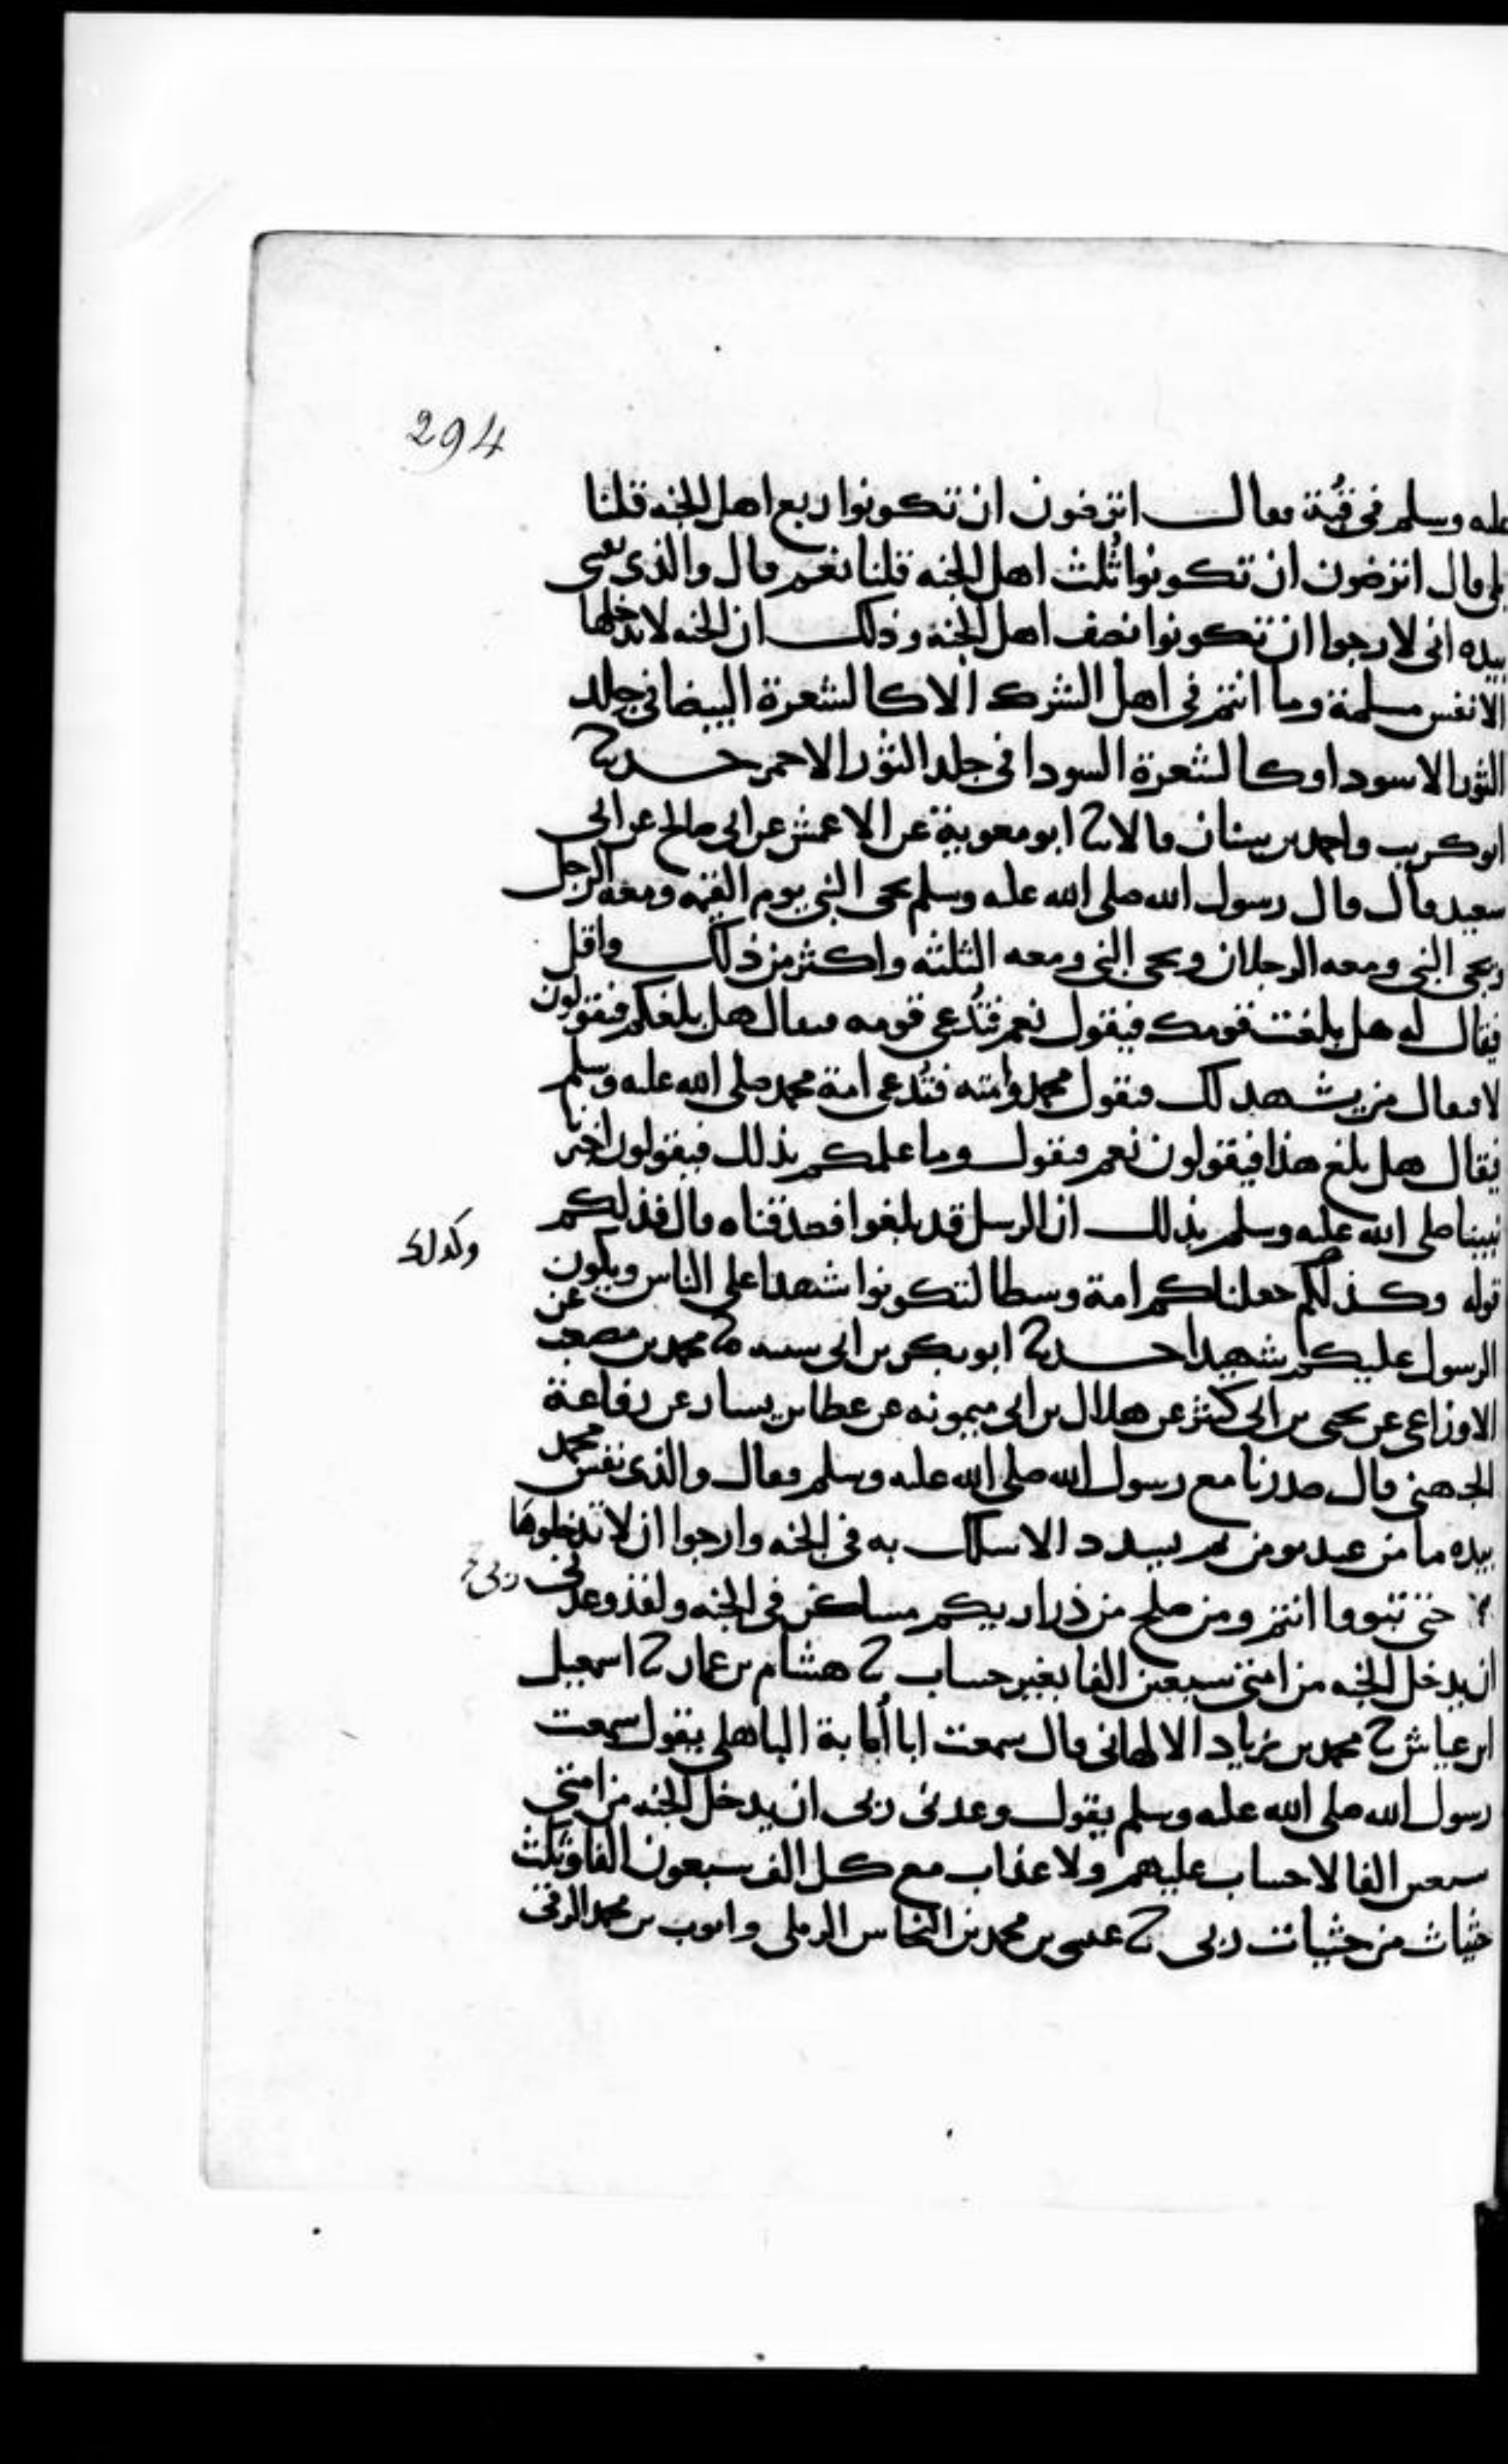 294
عليه وسلم في قبة فقال اترضون ان تكونوا ربع اهل الجنة قلنا
بلى قال اترضون ان تكونوا ثلث اهل الجنه قلنا نعم قال والذي نفسي
بيده اني لارجوا ان تكونوا نصف اهل الجنة وذلك ان الجنه لا يدخلها
الا نفس مسلمة وما انتم في اهل الشرك الا كالشعرة البيضا في جلد
الثور الاسود او كالشعرة السودا في جلد الثور الاحمر حدثنا
ابو كريب واحمد بن سنان قالا ثنا ابو معوية عن الاعمش عن ابي صالح عن ابي
سعيد قال قال رسول الله صلى الله عليه وسلم يجي النبي يوم القيمه ومعه الرجل
ويجي النبي ومعه الرجلان ويجي النبي ومعه الثلثه واكثر من ذلك واقل
فيقال له هل بلغت قومك فيقول نعم فتدعى قومه فيقال هل بلغكم فيقولون
لا فيقال من يشهد لك فيقول محمد وامته فتدعى امة محمد صلى الله عليه وسلم
فيقال هل بلغ هذا فيقولون نعم فيقول وما علمكم بذلك فيقولون اخبرنا
نبينا صلى الله عليه وسلم بذلك ان الرسل قد بلغوا فصدقناه قال فذلكم
وكذلك
قوله وكذلكم جعلناكم امة وسطا لتكونوا شهدا على الناس ويكون
الرسول عليكم شهيدا حدثنا ابو بكر بن ابي شيبه ثنا محمد بن مصعب عن
الاوزاعي عن يحيى بن ابي كثير عن هلال بن ابي ميمونه عن عطا بن يسار عن رفاعة
الجهني قال صدرنا مع رسول الله صلى الله عليه وسلم فقال والذي نفس محمد
بيده ما من عبد يومن ثم يسدد الا سلك به في الجنه وارجوا ان لا تدخلوها
حتى تبووا انتم ومن صلح من ذراريكم مساكن في الجنه ولقد وعدني ربي
ان يدخل الجنه من امتي سبعين الفا بغير حساب ثنا هشام بن عمار ثنا اسمعيل
ابن عياش ثنا محمد بن زياد الالهاني قال سمعت ابا أمامة الباهلي يقول سمعت
رسول الله صلى الله عليه وسلم يقول وعدني ربي ان يدخل الجنه من امتي
سبعين الفا لا حساب عليهم ولا عذاب مع كل الف سبعون الفا وثلث
حثيات من حثيات ربي ثنا عيسى بن محمد بن النحاس الرملي وايوب بن محمد الرقي